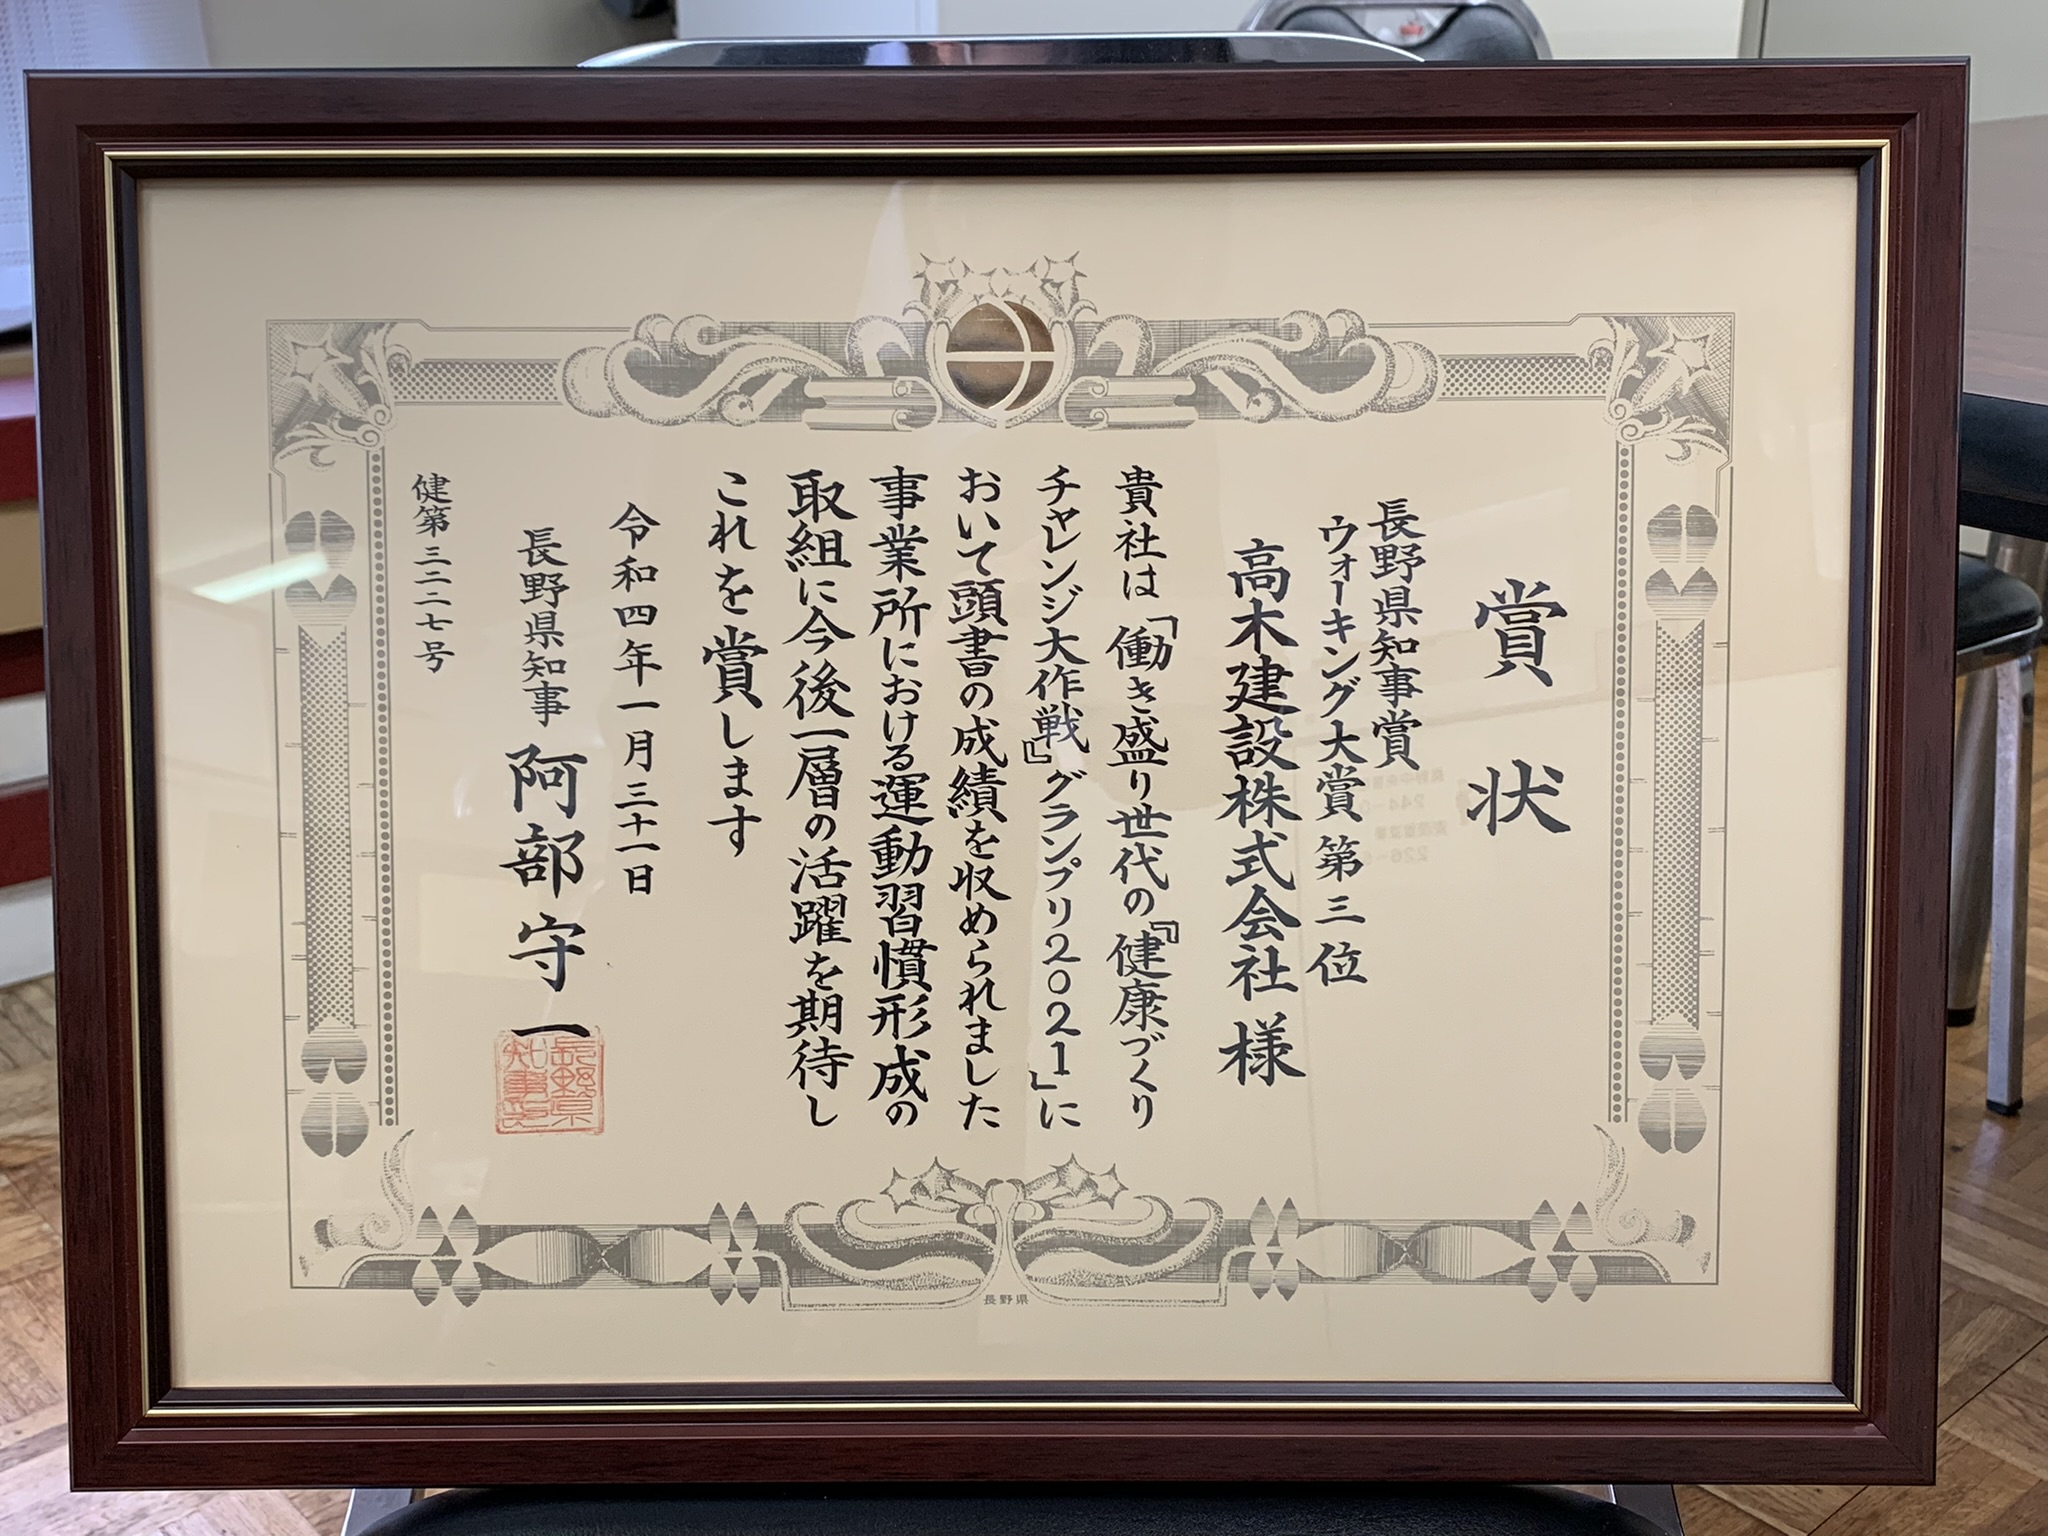 賞状
長野県知事賞
ウォーキング大賞 第三位
高木建設株式会社 様
貴社は「働き盛り世代の『健康づくり
チャレンジ大作戦』グランプリ2021」に
おいて頭書の成績を収められました
事業所における運動習慣形成の
取組に今後一層の活躍を期待し
これを賞します
令和四年一月三十一日
長野県知事 阿部守一
長野県知事之印
健第三二二七号
長野県